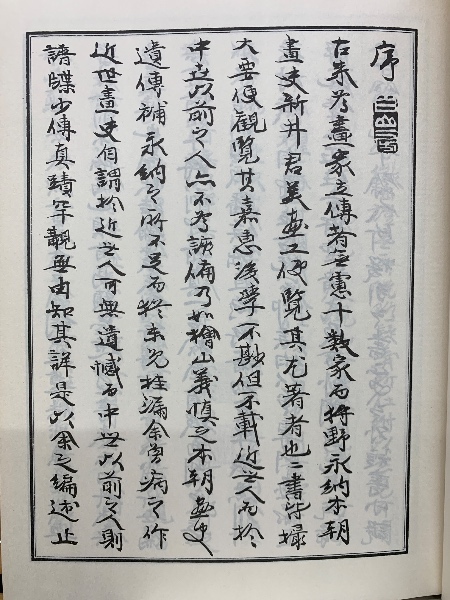 序
古來爲畫家立傳者無慮十數家而狩野永納本朝
畫史新井君美畫工便覽其尤著者也二書皆撮
大要便觀覽其嘉惠後學不尠但不載近世人而於
中世以前之人亦不爲詳備乃如檜山義愼之本朝畫史
遺傳補永納之所不足而終未免挂漏余嘗病之作
近世畫史自謂於近世人可無遺憾而中世以前之人則
譜牒少傳眞蹟罕覯無由知其詳是以余之編述止